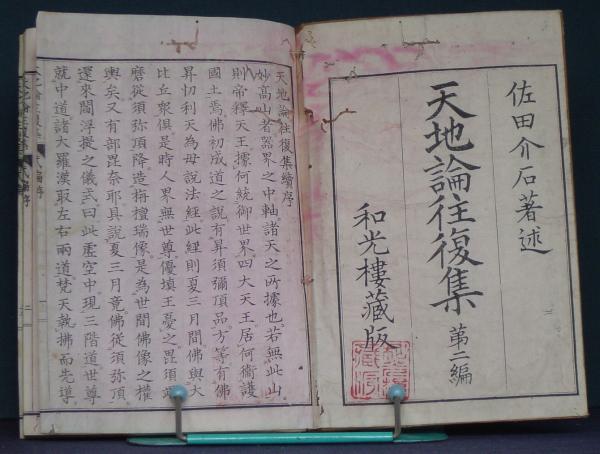 佐田介石著述
天地論往復集 第二編
和光樓藏版
天地論往復集續序
妙高山者器界之中軸諸天之所據也若無此山
則帝釋天王據何統御世界四大天王居何衞護
國土焉佛初成道之説有昇須彌頂品方等有佛
昇忉利天為母説法經此經則夏三月間佛與大
比丘衆俱是時人界無世尊優填王憂之毘須
磨從須弥頂降造栴檀瑞像是為世間佛像之權
輿矣又有部毘奈耶具説夏三月竟佛從須弥頂
還來閻浮提之儀式曰此虛空中現三階道世尊
就中道諸大羅漢取左右兩道梵天執拂而先導